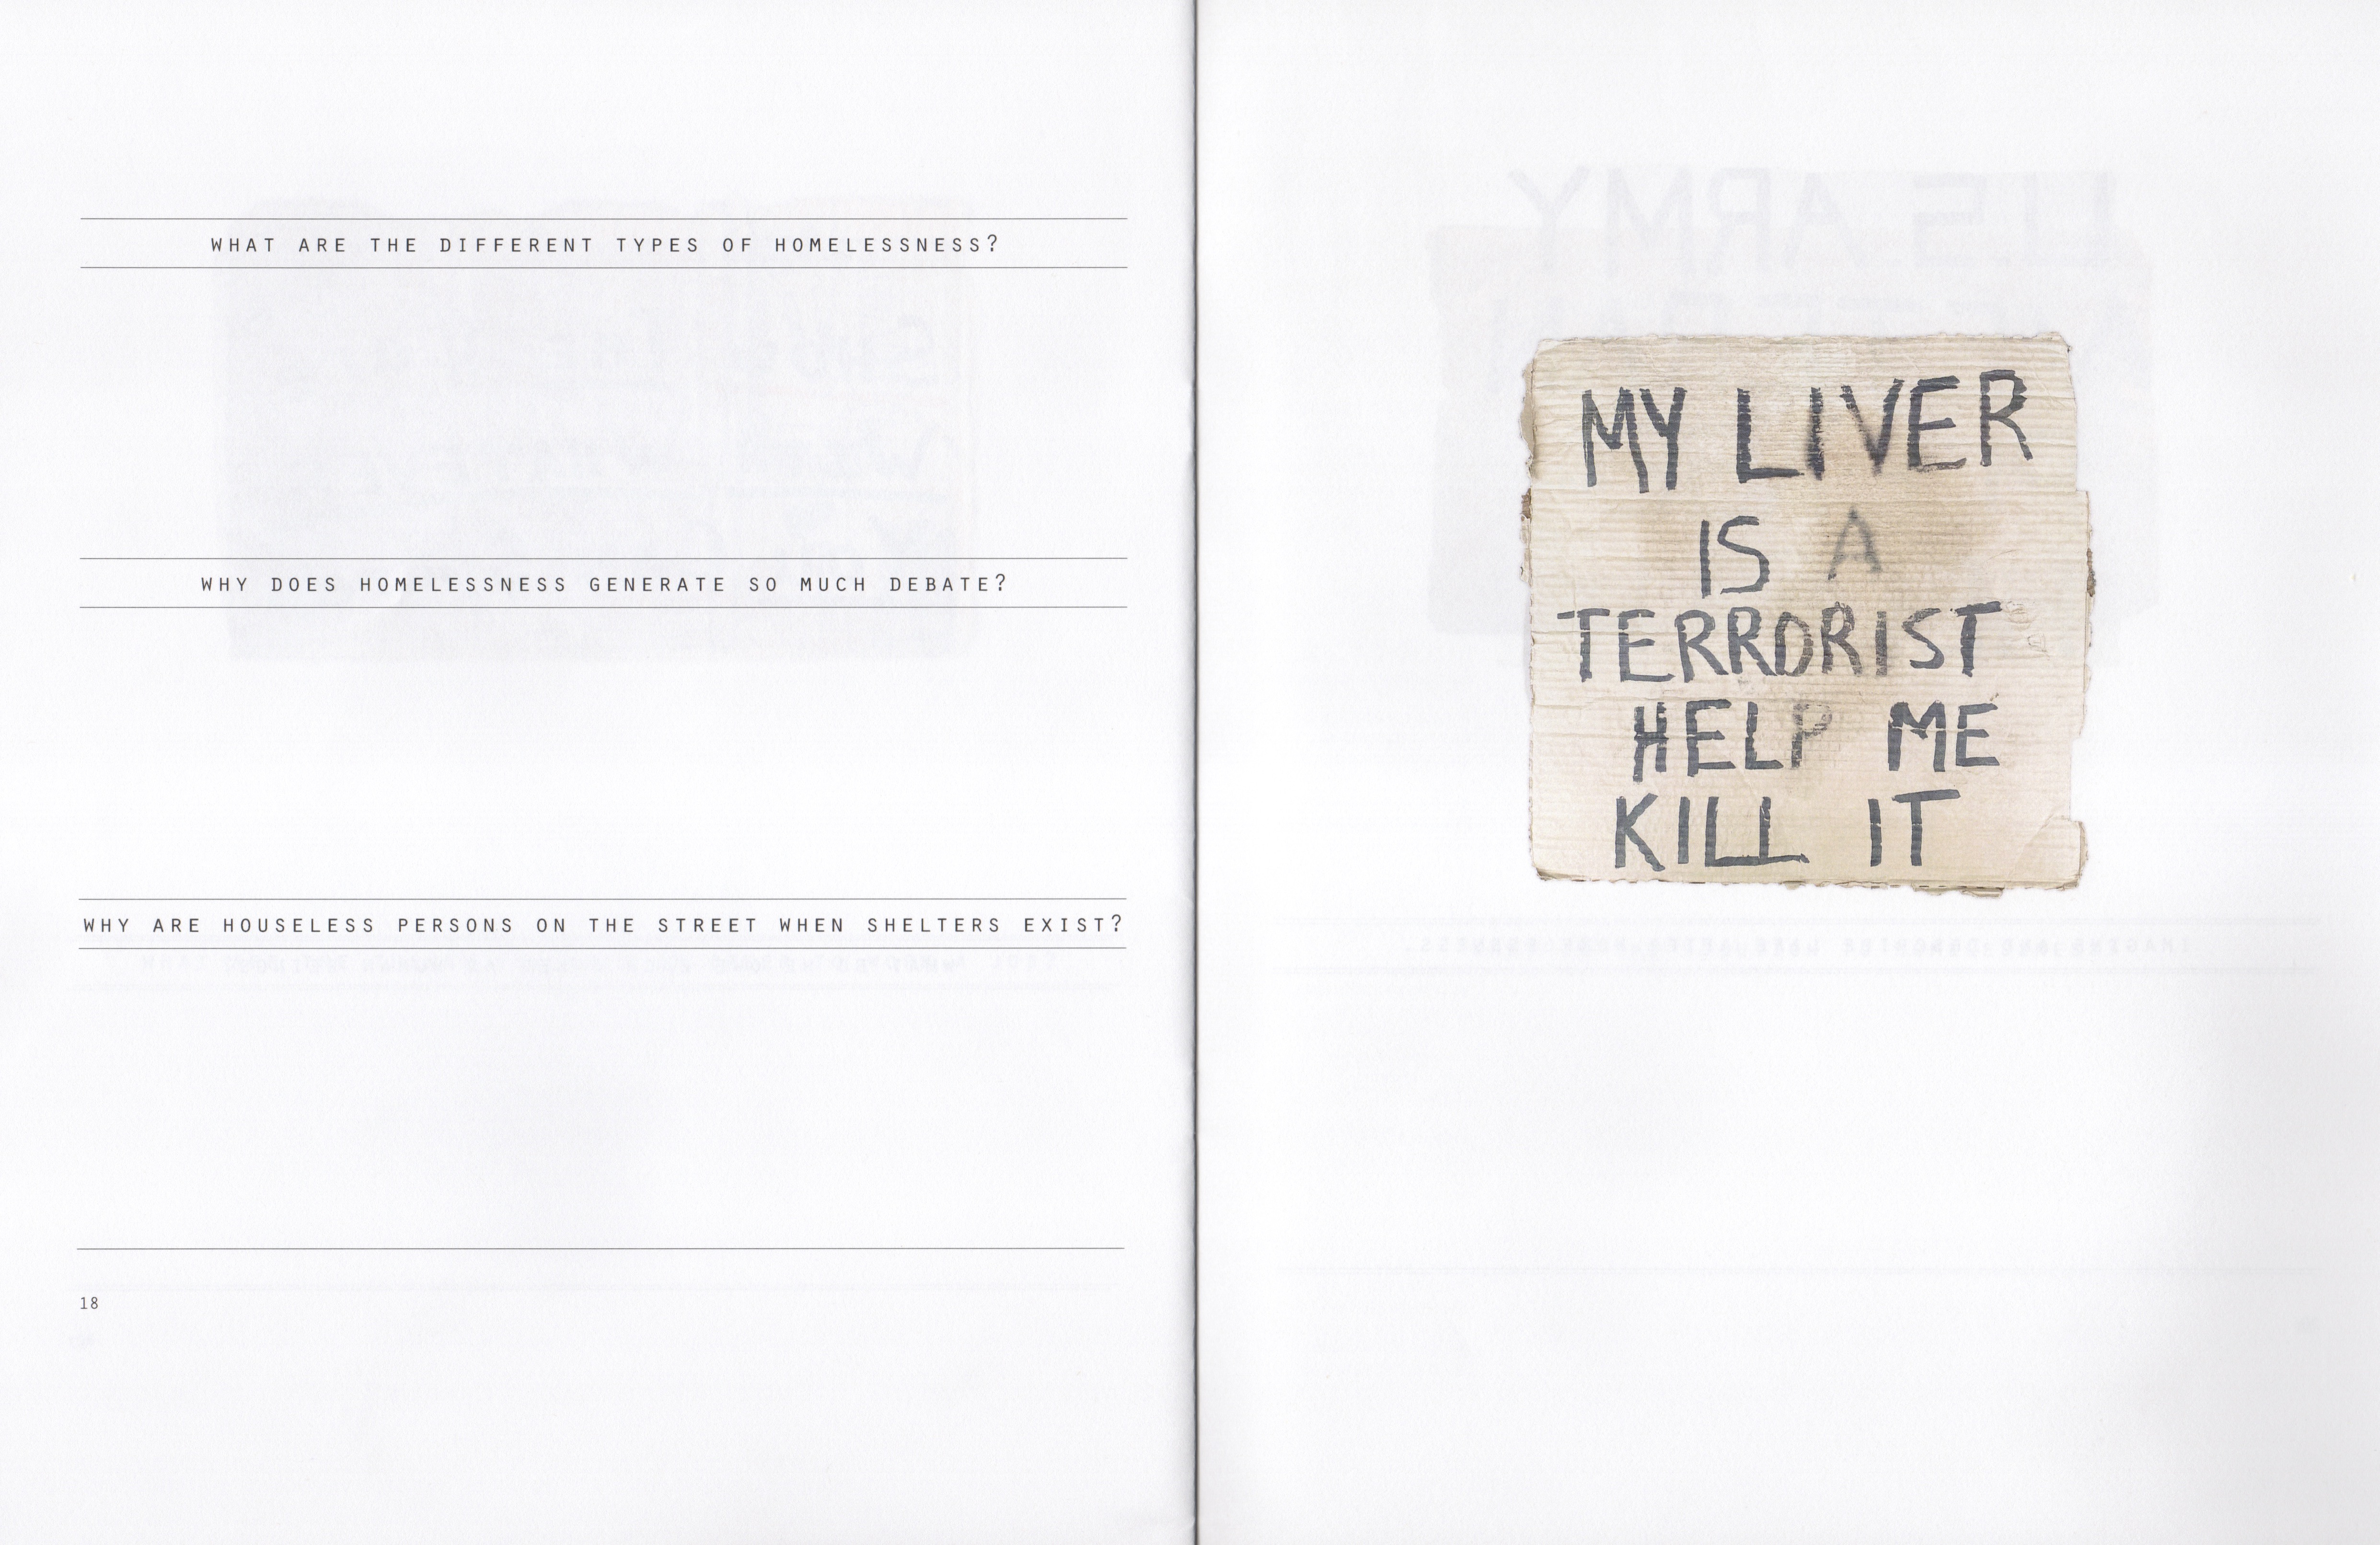 WHAT ARE THE DIFFERENT TYPES OF HOMELESSNESS?
WHY DOES HOMELESSNESS GENERATE SO MUCH DEBATE?
WHY ARE HOUSELESS PERSONS ON THE STREET WHEN SHELTERS EXIST?
18
MY LIVER
IS A
TERRORIST
HELP ME
KILL IT